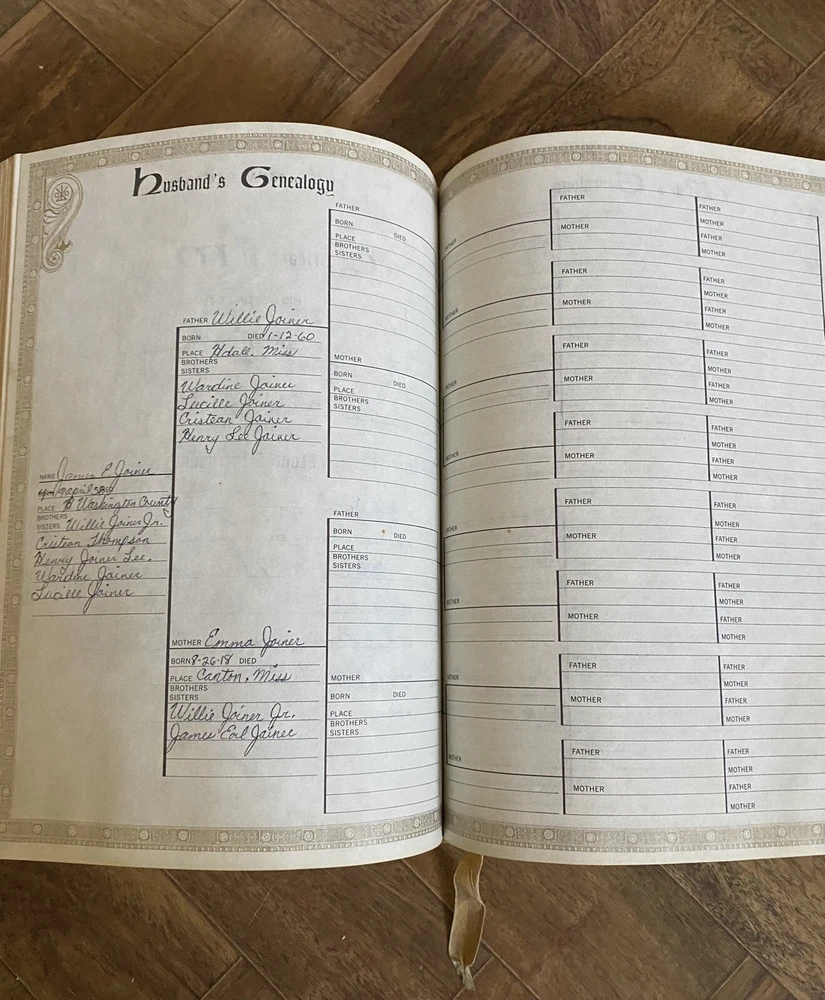 Husband's Genealogy
FATHER
BORN DIED
PLACE
BROTHERS
SISTERS
FATHER Willie Joiner
BORN DIED 1-12-60
PLACE Hdale, Miss
BROTHERS
SISTERS
Wardine Joiner
Lucille Joiner
Cristean Joiner
Henry Lee Joiner
MOTHER
BORN DIED
PLACE
BROTHERS
SISTERS
NAME James E Joiner
PLACE Washington County
BROTHERS
SISTERS Willie Joiner Jr.
Cristean Thompson
Henry Joiner Lee.
Wardine Joiner
Lucille Joiner
FATHER
BORN DIED
PLACE
BROTHERS
SISTERS
MOTHER Emma Joiner
BORN 8-26-18 DIED
PLACE Canton, Miss
BROTHERS
SISTERS
Willie Joiner Jr.
James Earl Joiner
MOTHER
BORN DIED
PLACE
BROTHERS
SISTERS
FATHER
MOTHER
FATHER
MOTHER
FATHER
MOTHER
FATHER
MOTHER
FATHER
MOTHER
FATHER
MOTHER
FATHER
MOTHER
FATHER
MOTHER
FATHER
MOTHER
FATHER
MOTHER
FATHER
MOTHER
FATHER
MOTHER
FATHER
MOTHER
FATHER
MOTHER
FATHER
MOTHER
FATHER
MOTHER
FATHER
MOTHER
FATHER
MOTHER
FATHER
MOTHER
FATHER
MOTHER
FATHER
MOTHER
FATHER
MOTHER
FATHER
MOTHER
FATHER
MOTHER